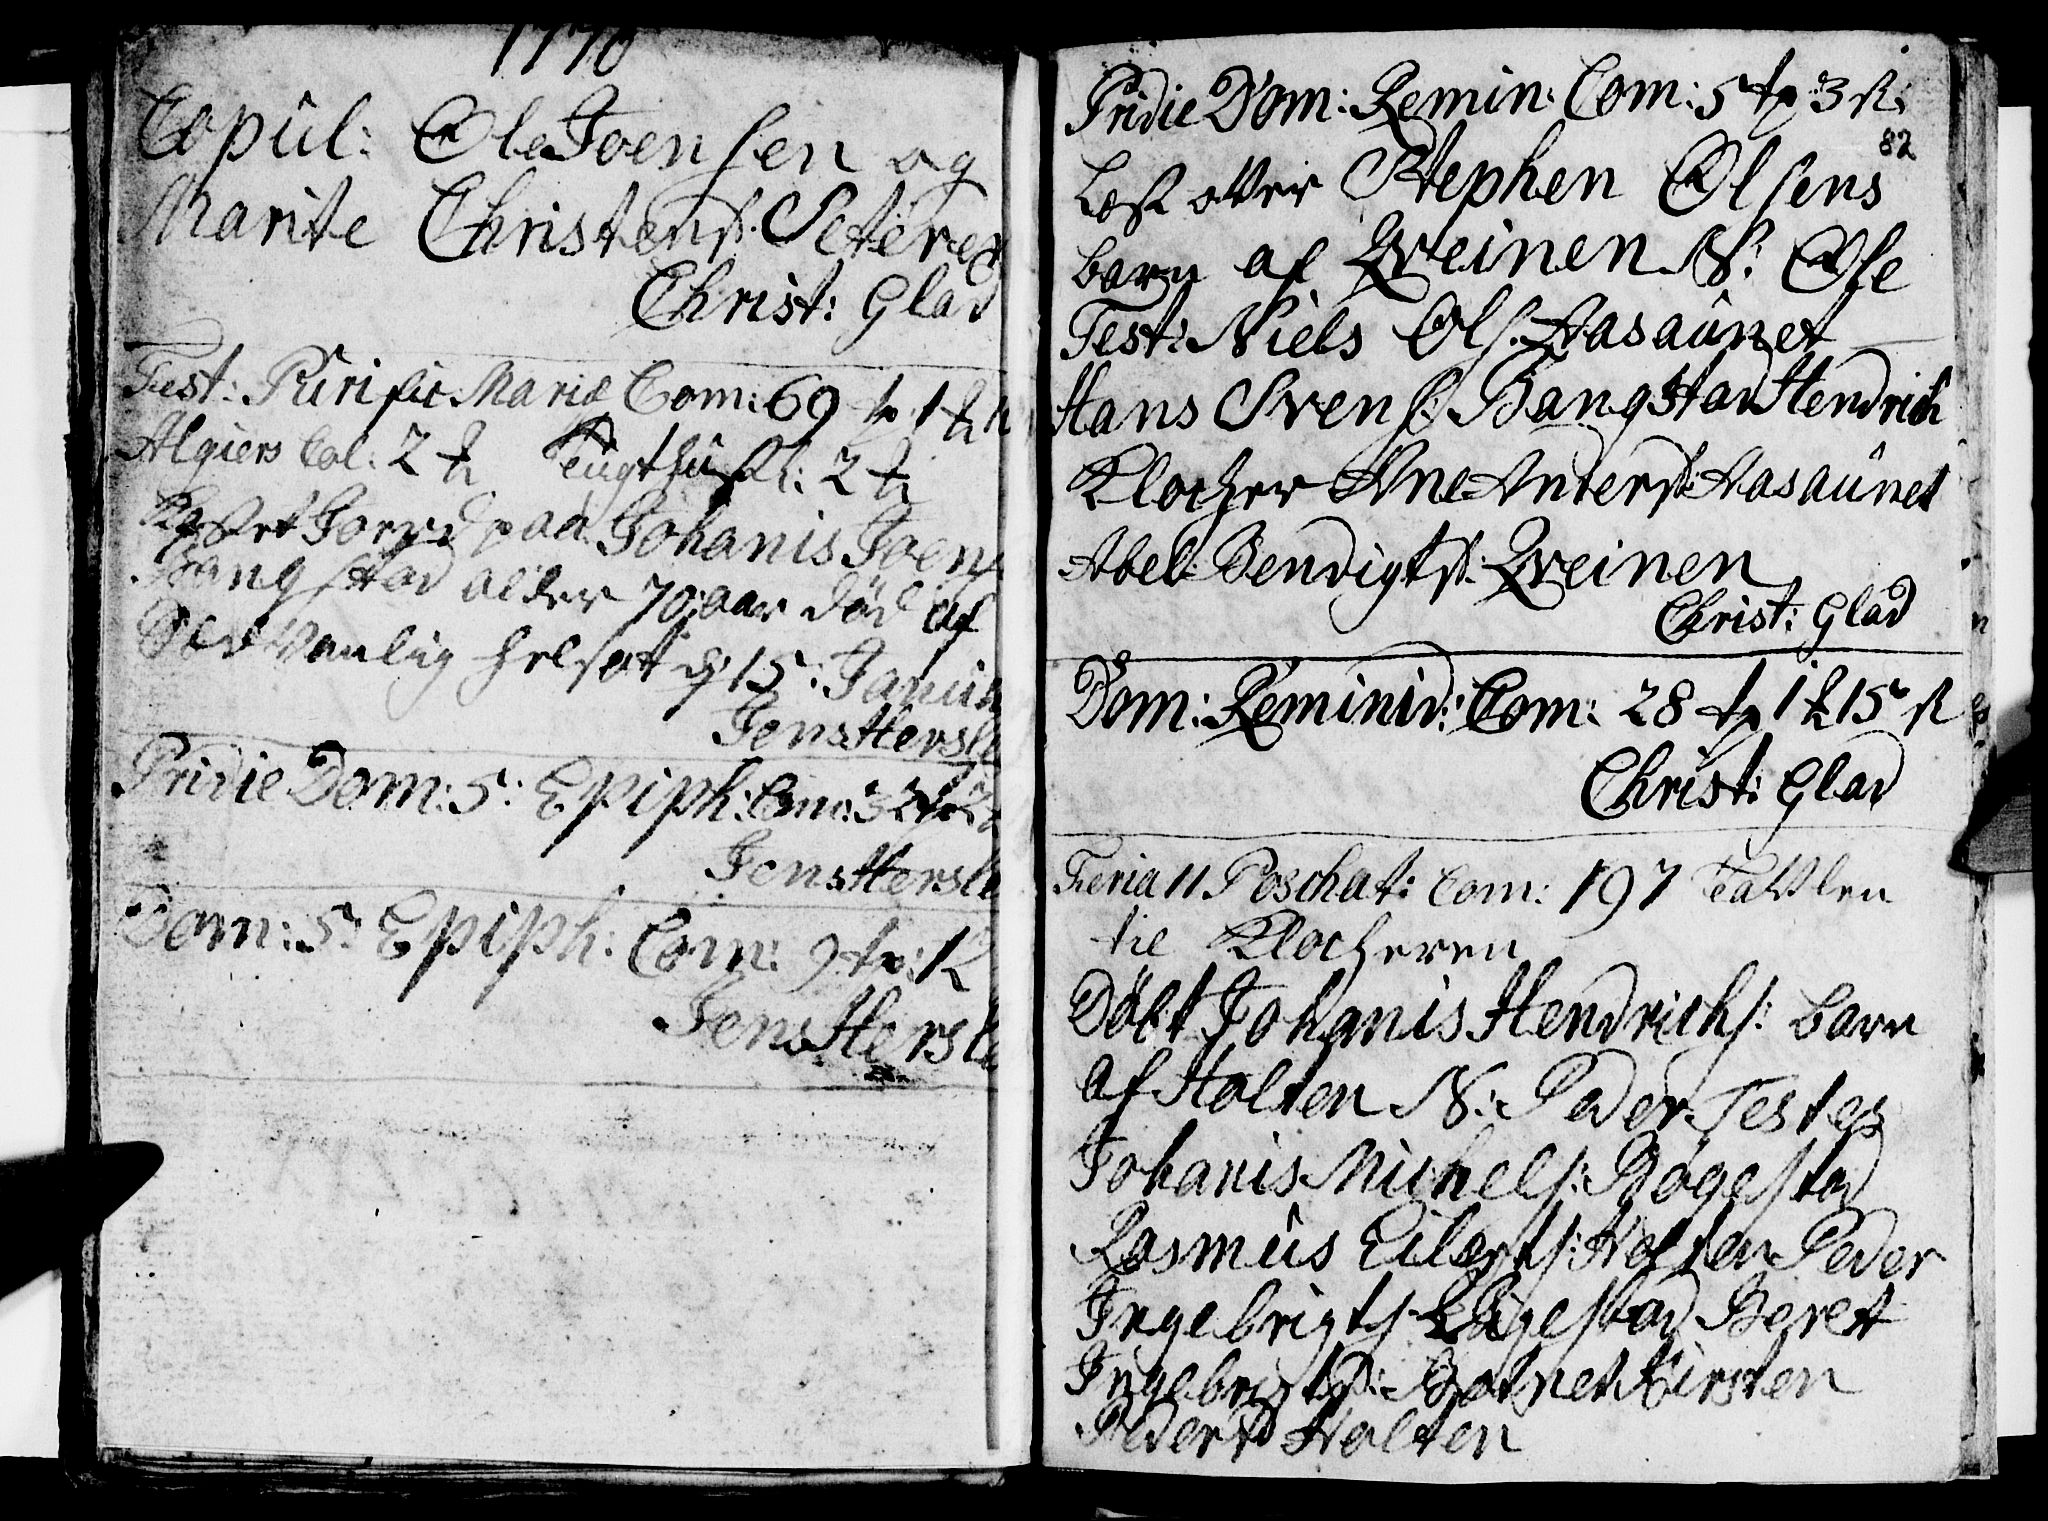 1770
Copul: Ole Joensen og
Marite Christensd. Seteren
Christ: Glad
Fest: Purific Mariæ Com: 69
Algiers Col: 2 Tugthus Col: 2
Kastet Jord paa Johanis Joens
Bangstad alder 70: aar død af
Sedvanlig helsot d 15: Januar
Jens Hersle
Pridie Dom: 5: Epiph: Com:
Jens Hersle
Dom: 5: Epiph: Com: 9
Jens Hersle
Pridie Dom: Remin: Com: 5 tp: 3 ß:
82
Læst over Stephen Olsens
barn af Qveinen N: Ole
Test: Niels Ols. Aasaunet
Hans Svens: Bangstad Hendrich
Klocher Ane Andersd: Aasaunet
Abel: Bendigtsd. Qveinen
Christ: Glad
Dom: Reminid: Com: 28 tp 1 15 ß
Christ: Glad
Feria 11 Poschat: Com: 197 Tavlen
til Klocheren
Døbt Johanis Hendrichs: barn
af Holten N: Peder Testes
Johanis Michels: Bøgestad
Rasmus Eilerts: Holten Peder
Ingebrigts Bøgestad Beret
Ingebrigtsd: Botnet Kirsten
Pedersd Holten